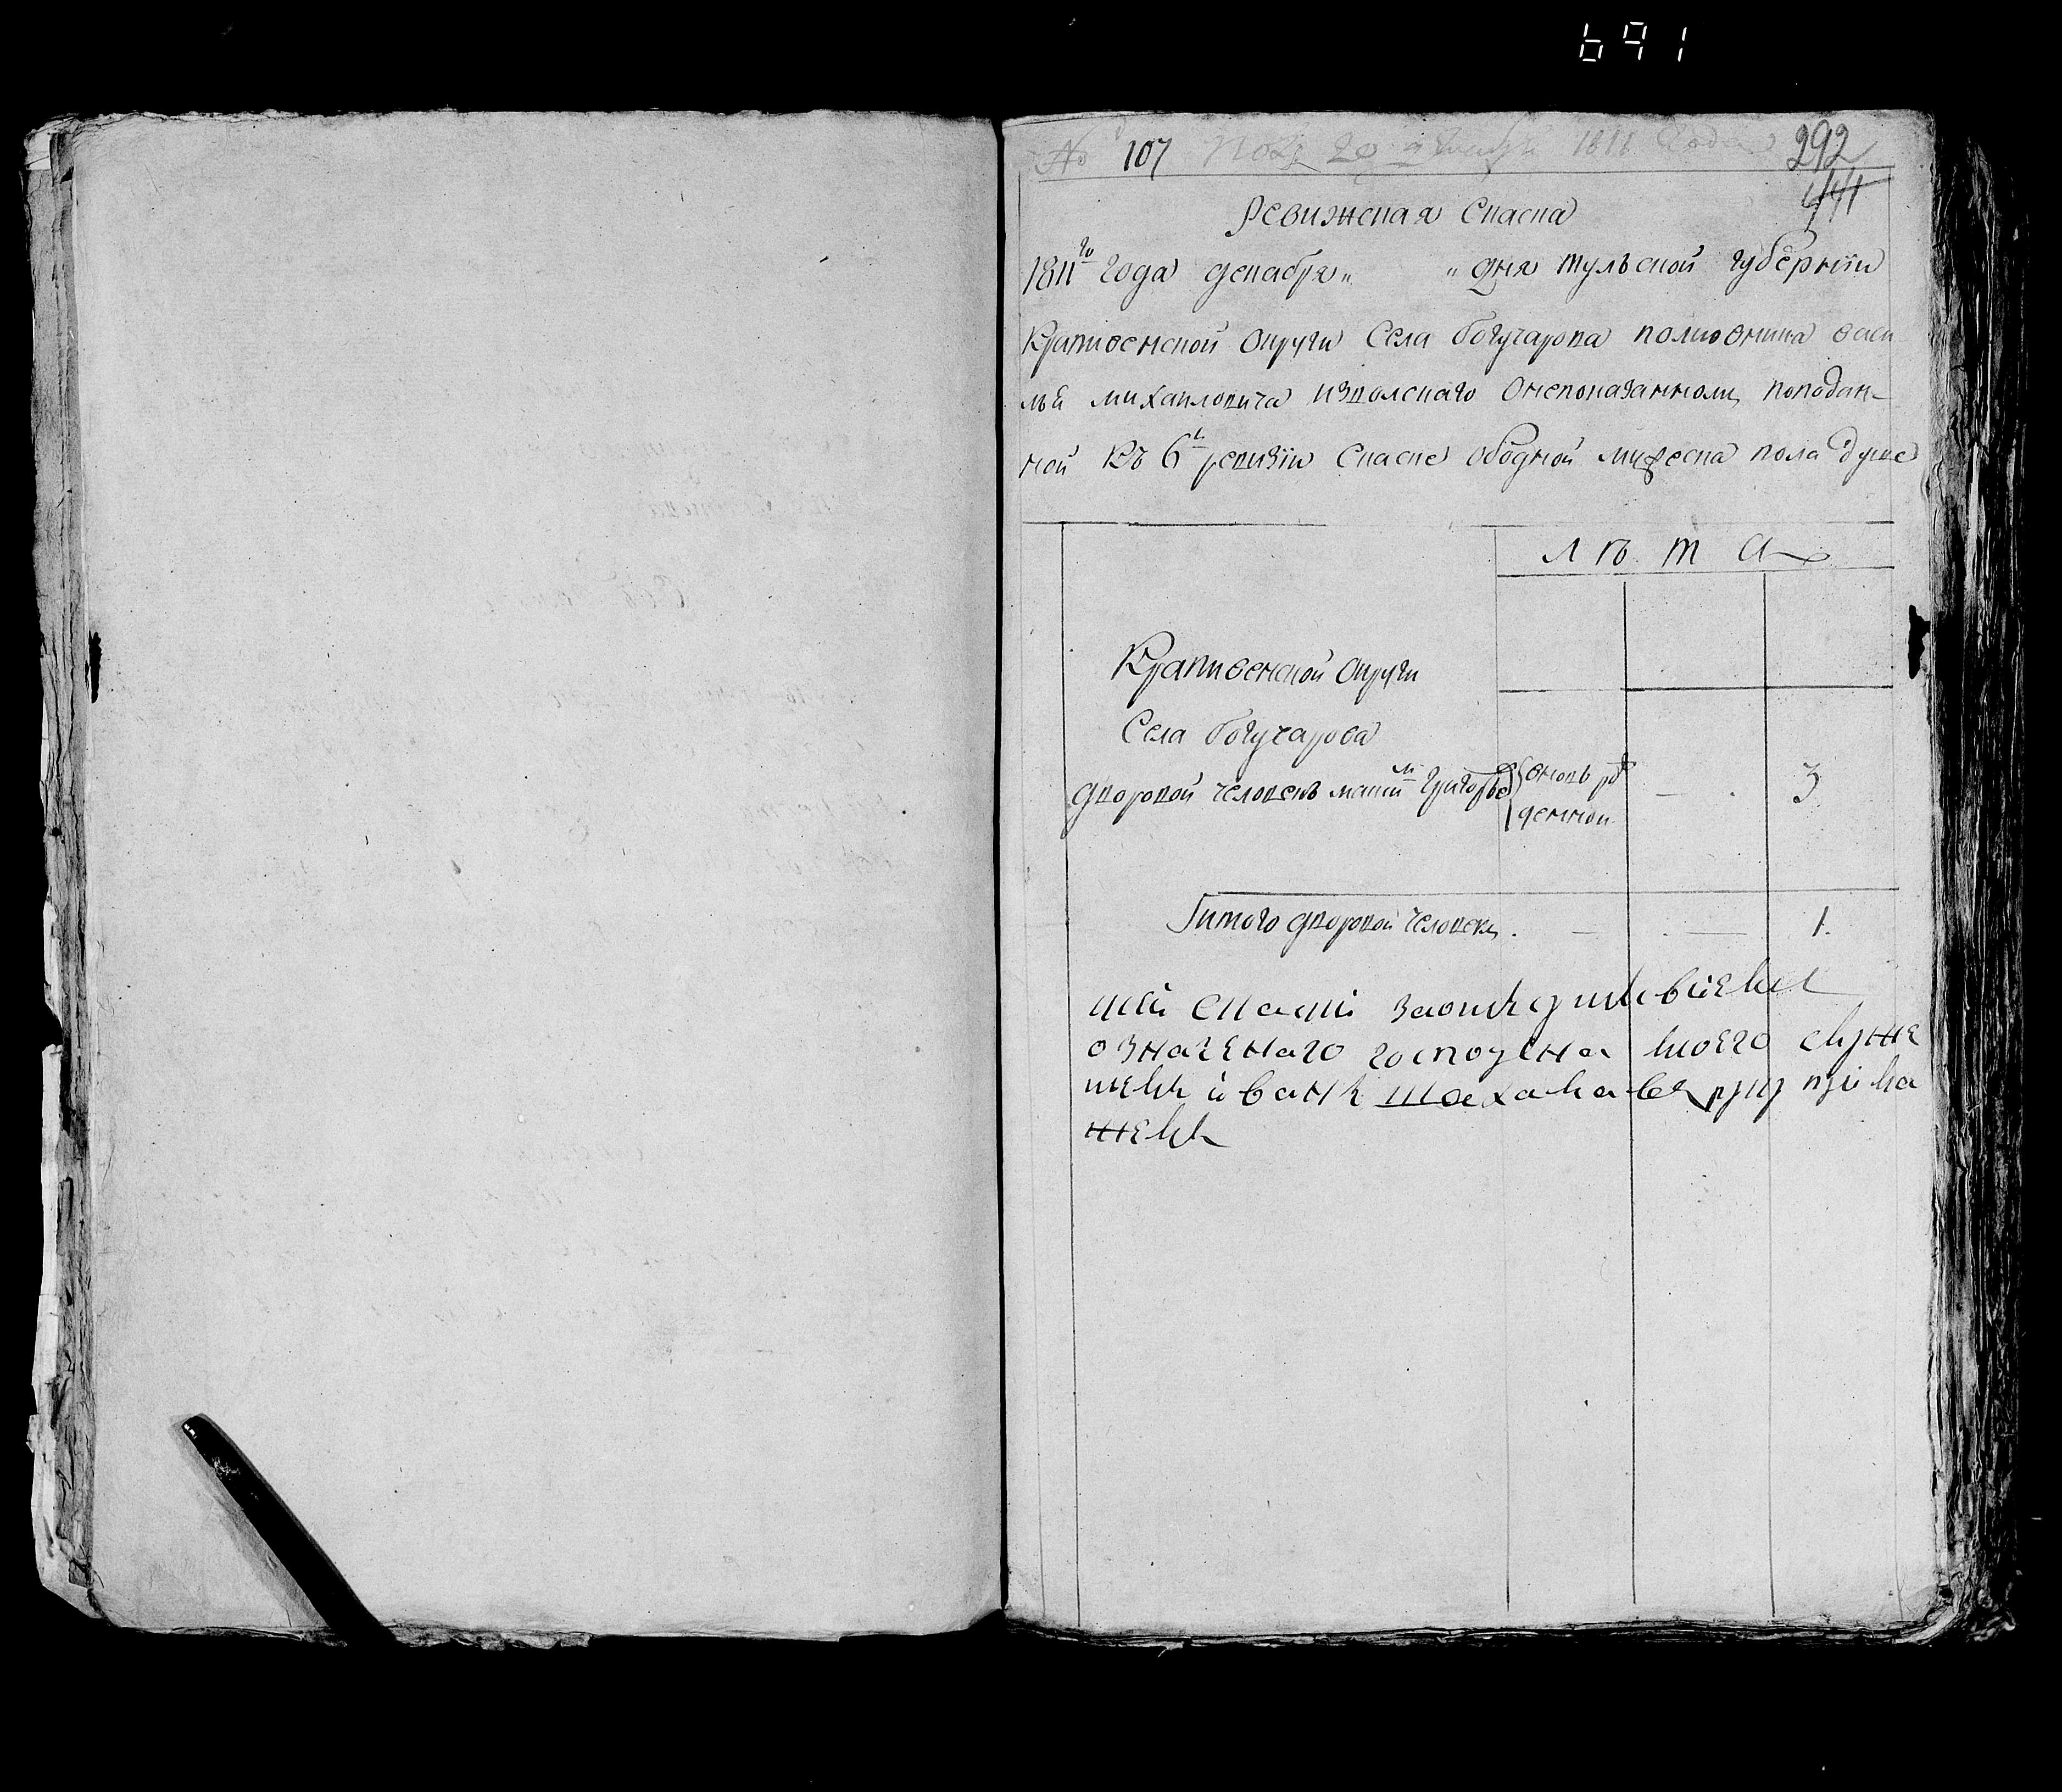 691
№ 107 20 декабря 1811 года 292
441
Ревижская Скаска
1811го года декабря „ „ дня тульской губернiи
Крапивенской округи Села богучарова полковника васи
лья михаиловича о непоказанномъ поподан-
ной къ 6й ревизiи Скаске ободной мужеска пола душе
Лѣта
Крапивенской округи
Села богучарова
дворовой человекъ Григорьевъ вновь ро
денной 3
Итого дворовой человекъ . 1.
означенаго господина моего служи
тель иванъ руку прила
жилъ